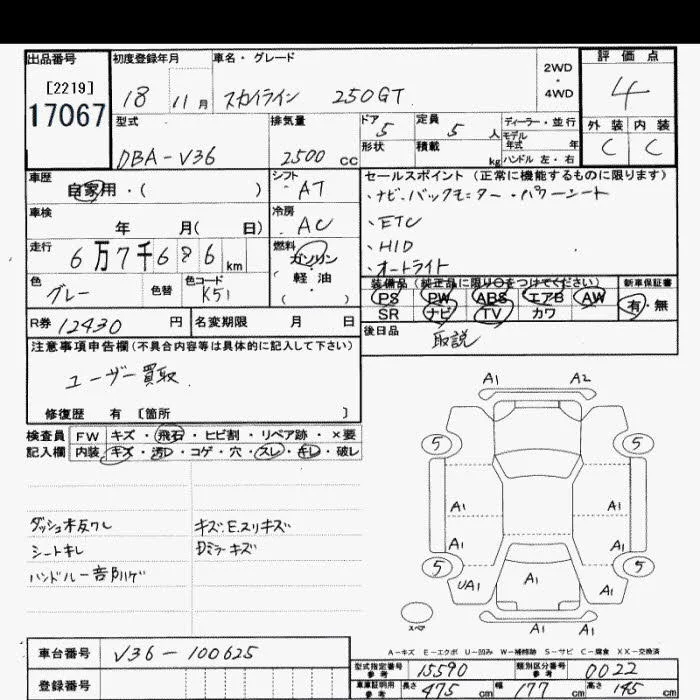 出品番号
[2219]
17067
初度登録年月
18 11月
車名・グレード
スカイライン 250GT
2WD
・
4WD
評価点
4
外装 内装
C C
型式
DBA-V36
排気量
2500 cc
ドア
5
形状
定員
5 人
積載
kg
ディーラー・並行
モデル
年式 年
ハンドル 左・右
車歴
自家用・( )
シフト
AT
車検
年 月( 日)
冷房
AC
走行
6万7千686km
燃料
ガソリン
軽・油
( ・ )
色
グレー
色替
色コード
K51
R券 12430 円
名変期限 月 日
セールスポイント(正常に機能するものに限ります)
・ナビ・バックモニター・パワーシート
、ETC
、HID
、オートライト
装備品(純正品に限り○をつけてください)
PS PW ABS エアB AW
SR ナビ TV カワ
新車保証書
有・無
後日品
取説
注意事項申告欄(不具合内容等は具体的に記入して下さい)
ユーザー買取
修復歴 有 〔箇所 〕
検査員
記入欄
FW キズ・飛石・ヒビ割・リペア跡・×要
内装 キズ・汚れ・コゲ・穴・スレ・キレ・破レ
シートキレ
キズ.E.スリキズ
A1 A2
5 5
A1 A1
A1 A1
5 5
UA1 A1 A1
A1
スペア
A-キズ E-エクボ U-凹み W-補修跡 S-サビ C-腐食 XX-交換済
車台番号 V36-100625
登録番号
型式指定番号
参考
15590
類別区分番号
参考
0022
車庫証明用
参考
長さ 475 cm 幅 177 cm 高さ 145 cm